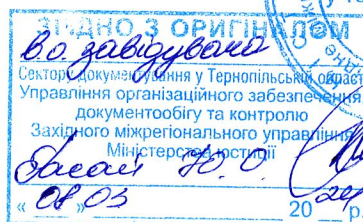 ЗГІДНО З ОРИГІНАЛОМ
В.о. завідувача
Сектору документування у Тернопільській області
Управління організаційного забезпечення
документообігу та контролю
Західного міжрегіонального управління
Міністерства юстиції
Ю. О.
« 08 » 03 20 24 р